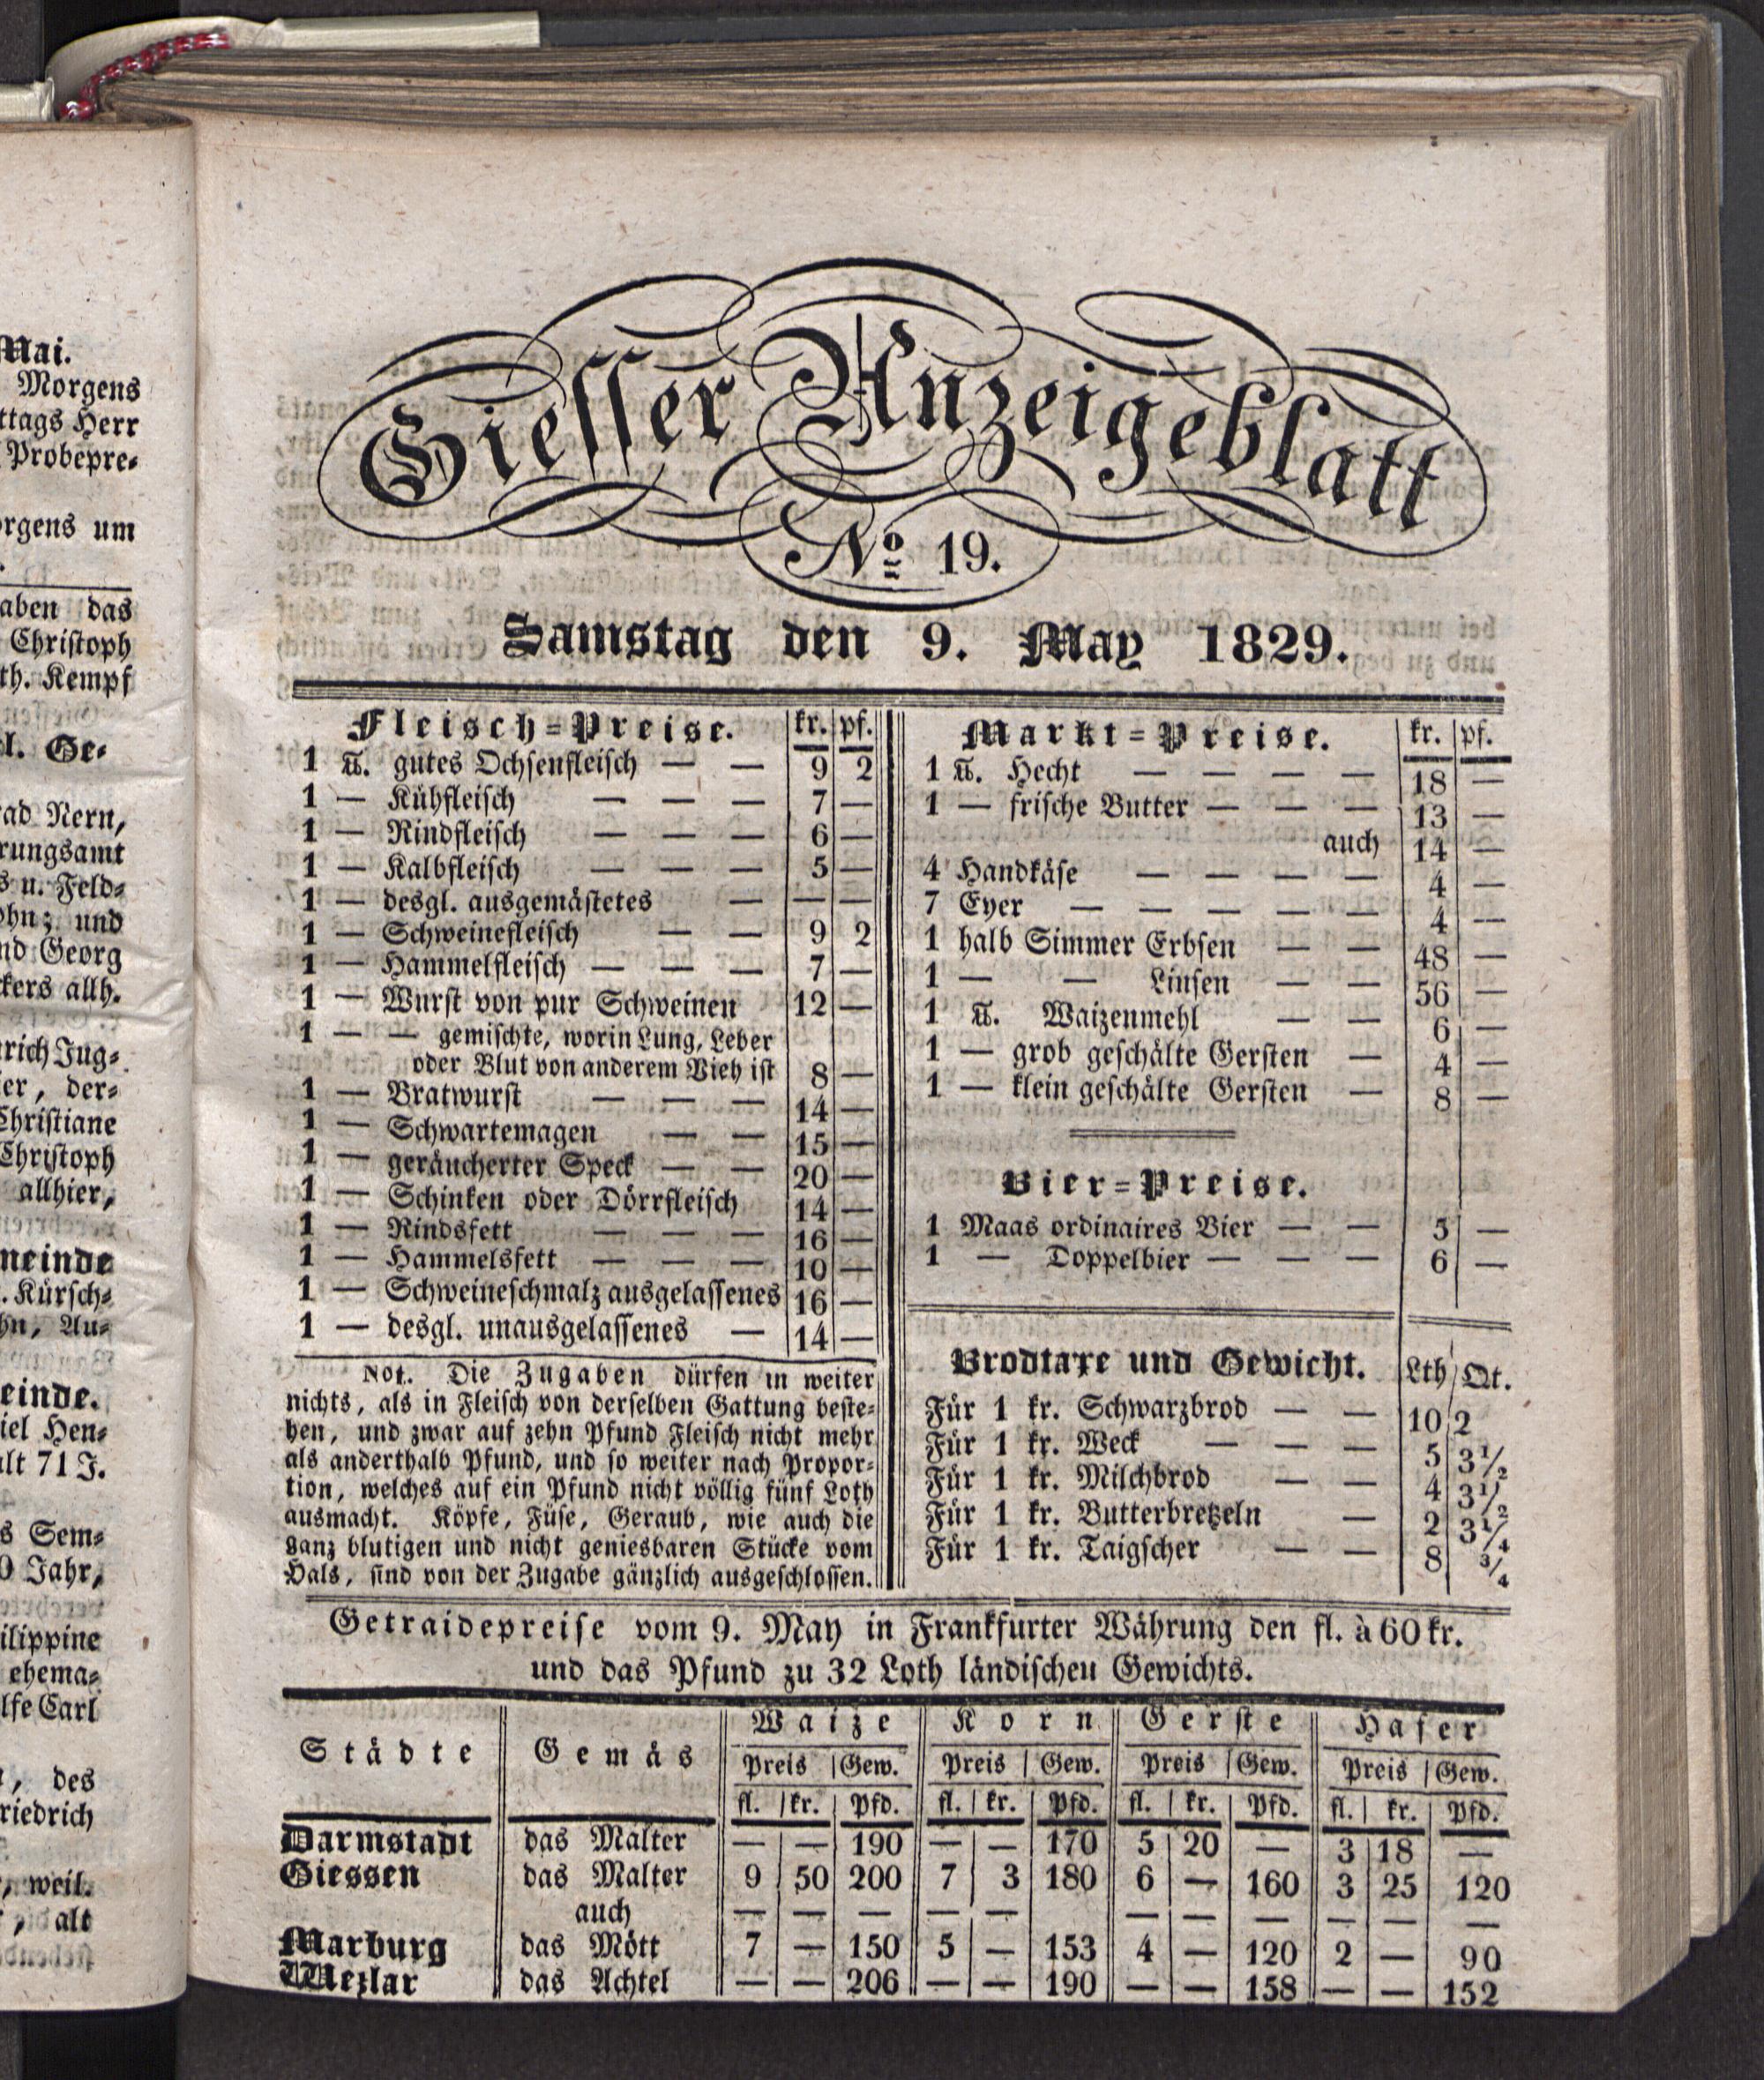 Mai.
Morgens
ttags Herr
Probepre-
orgens um
aben das
Christoph
th. Kempf
l. Ge-
ad Nern,
rungsamt
s u. Feld-
ohn; und
nd Georg
ckers allh.
rich Jug-
er, der-
Christiane
Christoph
allhier,
meinde
. Kürsch-
hn, Au-
einde.
iel Hen-
alt 71 J.
s Sem-
0 Jahr,
ilippine
ehema-
lfe Carl
, des
riedrich
, weil.
, alt
Giesser Anzeigeblatt
No 19.
Samstag den 9. May 1829.
Fleisch-Preise. kr. pf.
1 ℔. gutes Ochsenfleisch — — 9 2
1 — Kühfleisch — — — 7 —
1 — Rindfleisch — — — 6 —
1 — Kalbfleisch — — — 5 —
1 — desgl. ausgemästetes — — —
1 — Schweinefleisch — — 9 2
1 — Hammelfleisch — — — 7 —
1 — Wurst von pur Schweinen 12 —
1 — — gemischte, worin Lung, Leber
oder Blut von anderem Vieh ist 8 —
1 — Bratwurst — — — 14 —
1 — Schwartemagen — — 15 —
1 — geräucherter Speck — — 20 —
1 — Schinken oder Dörrfleisch 14 —
1 — Rindsfett — — — 16 —
1 — Hammelsfett — — — 10 —
1 — Schweineschmalz ausgelassenes 16 —
1 — desgl. unausgelassenes — 14 —
Not. Die Zugaben dürfen in weiter
nichts, als in Fleisch von derselben Gattung beste-
hen, und zwar auf zehn Pfund Fleisch nicht mehr
als anderthalb Pfund, und so weiter nach Propor-
tion, welches auf ein Pfund nicht völlig fünf Loth
ausmacht. Köpfe, Füse, Geraub, wie auch die
ganz blutigen und nicht geniesbaren Stücke vom
Hals, sind von der Zugabe gänzlich ausgeschlossen.
Markt-Preise. kr. pf.
1 ℔. Hecht — — — — 18 —
1 — frische Butter — — — 13 —
auch 14 —
4 Handkäse — — — — 4 —
7 Eyer — — — — — 4 —
1 halb Simmer Erbsen — — 48 —
1 — — Linsen — — 56 —
1 ℔. Waizenmehl — — 6 —
1 — grob geschälte Gersten — 4 —
1 — klein geschälte Gersten — 8 —
Bier-Preise.
1 Maas ordinaires Bier — — 5 —
1 — Doppelbier — — — 6 —
Brodtaxe und Gewicht. Lth Qt.
Für 1 kr. Schwarzbrod — — 10 2
Für 1 kr. Weck — — — 5 3½
Für 1 kr. Milchbrod — — 4 3½
Für 1 kr. Butterbretzeln — 2 3¼
Für 1 kr. Taigscher — — 8 ¾
Getraidepreise vom 9. May in Frankfurter Währung den fl. à 60 kr.
und das Pfund zu 32 Loth ländischen Gewichts.
Städte Gemäs Waize Korn Gerste Hafer
Preis Gew. Preis Gew. Preis Gew. Preis Gew.
fl. kr. Pfd. fl. kr. Pfd. fl. kr. Pfd. fl. kr. Pfd.
Darmstadt das Malter — — 190 — — 170 5 20 — 3 18 —
Giessen das Malter 9 50 200 7 3 180 6 — 160 3 25 120
auch — — — — — — — — — — —
Marburg das Mött 7 — 150 5 — 153 4 — 120 2 — 90
Wezlar das Achtel — — 206 — — 190 — — 158 — — 152